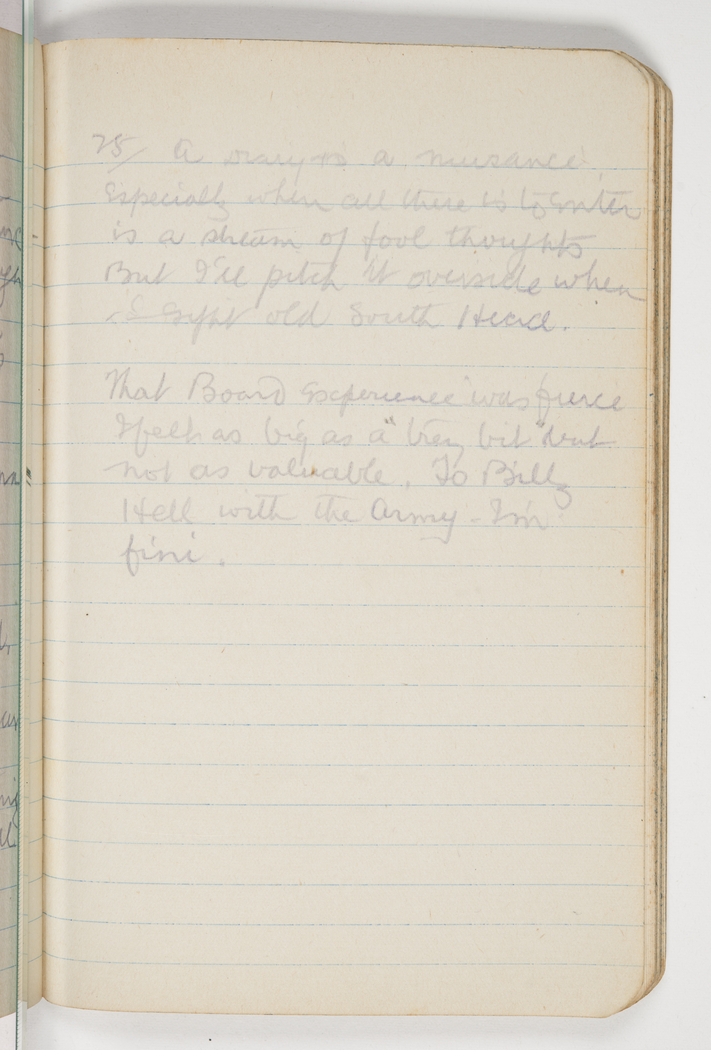 25/ A diary is a nuisance
Especially when all there is to enter
is a stream of fool thoughts
But I'll pitch it overside when
I sight old South Head.
That Board experience was fierce
I felt as big as a "trey bit" but
not as valuable. To Billy
Hell with the Army - I'm
fini.